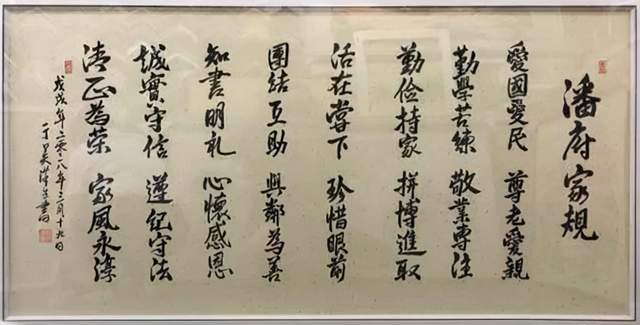 潘府家規
愛國愛民 尊老愛親
勤學苦練 敬業專注
勤俭持家 拼搏進取
活在當下 珍惜眼前
團結互助 與鄰為善
知書明礼 心懷感恩
誠實守信 遵紀守法
清正為荣 家風永淳
戊戌年二〇一八年三月十九日